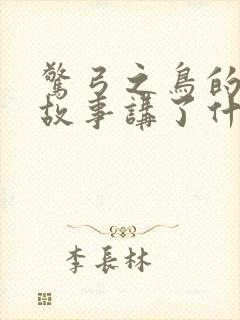 驚弓之鳥的
故事講了什
李長林